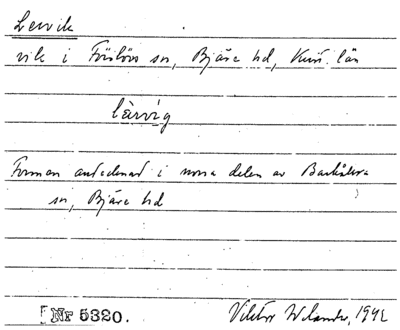 Lervik
vik i Förslövs sn, Bjäre hd, Krist. län
lärvig
Formen antecknad i norra delen av Barkåkra
sn, Bjäre hd
[Nr 5320.
Viktor Wilander, 1942